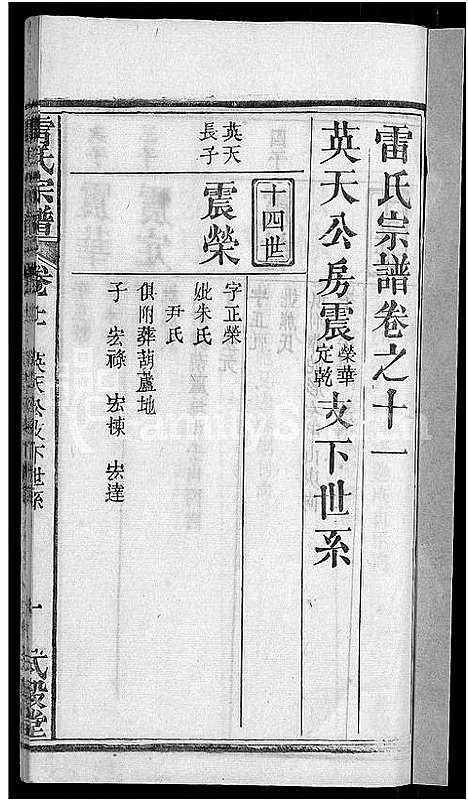 雷氏宗譜卷之十一
英天公房震榮華定乾支下世系
十四世
英天
長子
震榮
字正榮
妣朱氏
尹氏
俱附葬葫蘆地
子 宏祿 宏棟 宏達
雷氏宗譜
卷十一 英天公支下世系
一
式穀堂